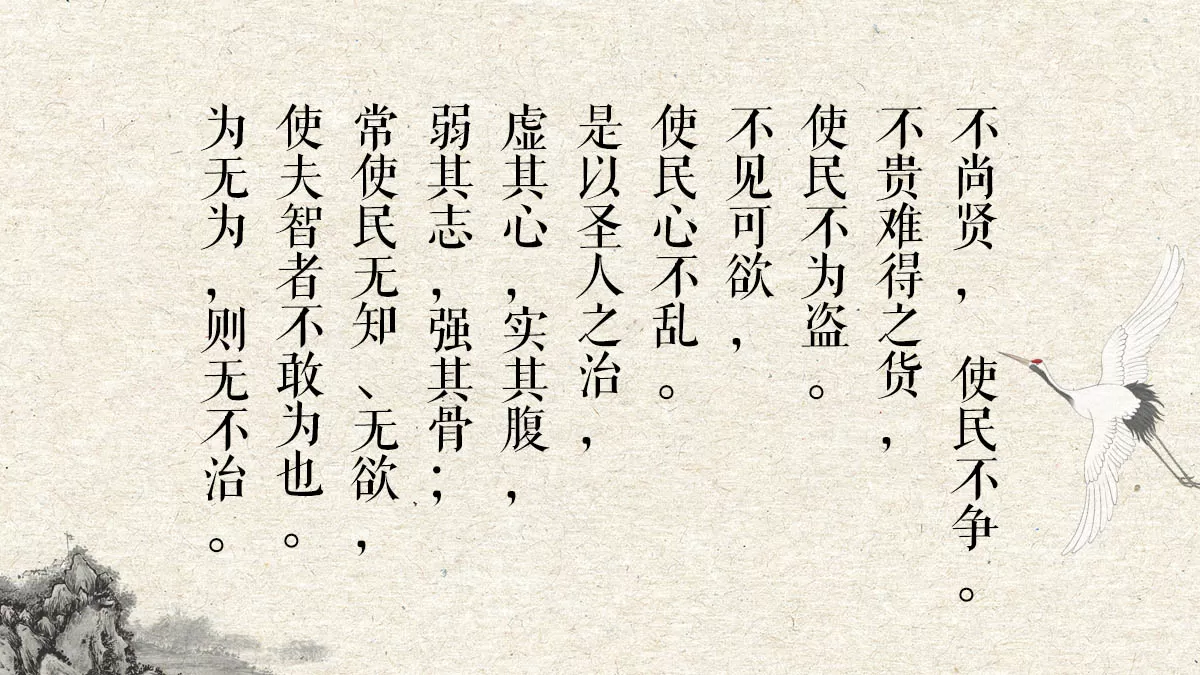 不尚贤，使民不争。
不贵难得之货，
使民不为盗。
不见可欲，
使民心不乱。
是以圣人之治，
虚其心，实其腹，
弱其志，强其骨；
常使民无知、无欲，
使夫智者不敢为也。
为无为，则无不治。